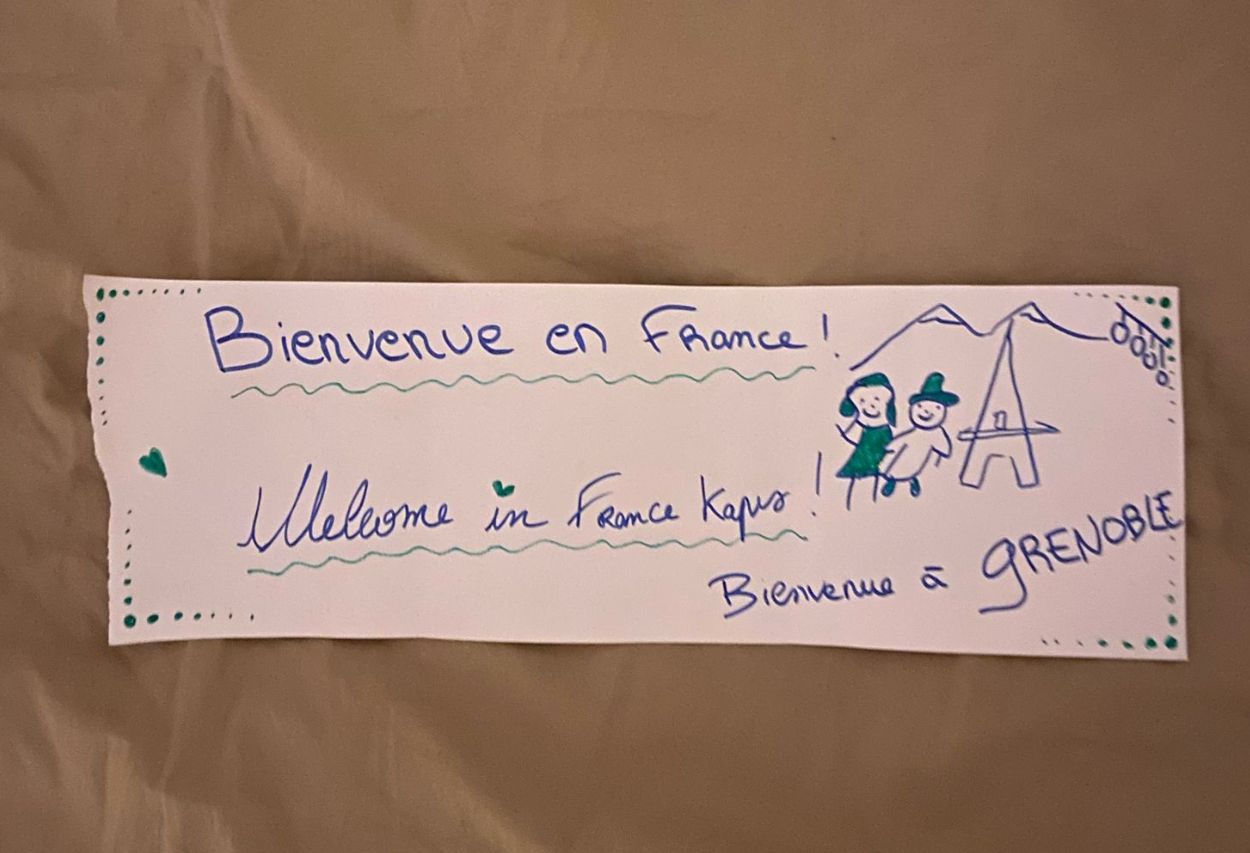 Bienvenue en France !
Welcome in France Kapus !
Bienvenue à GRENOBLE